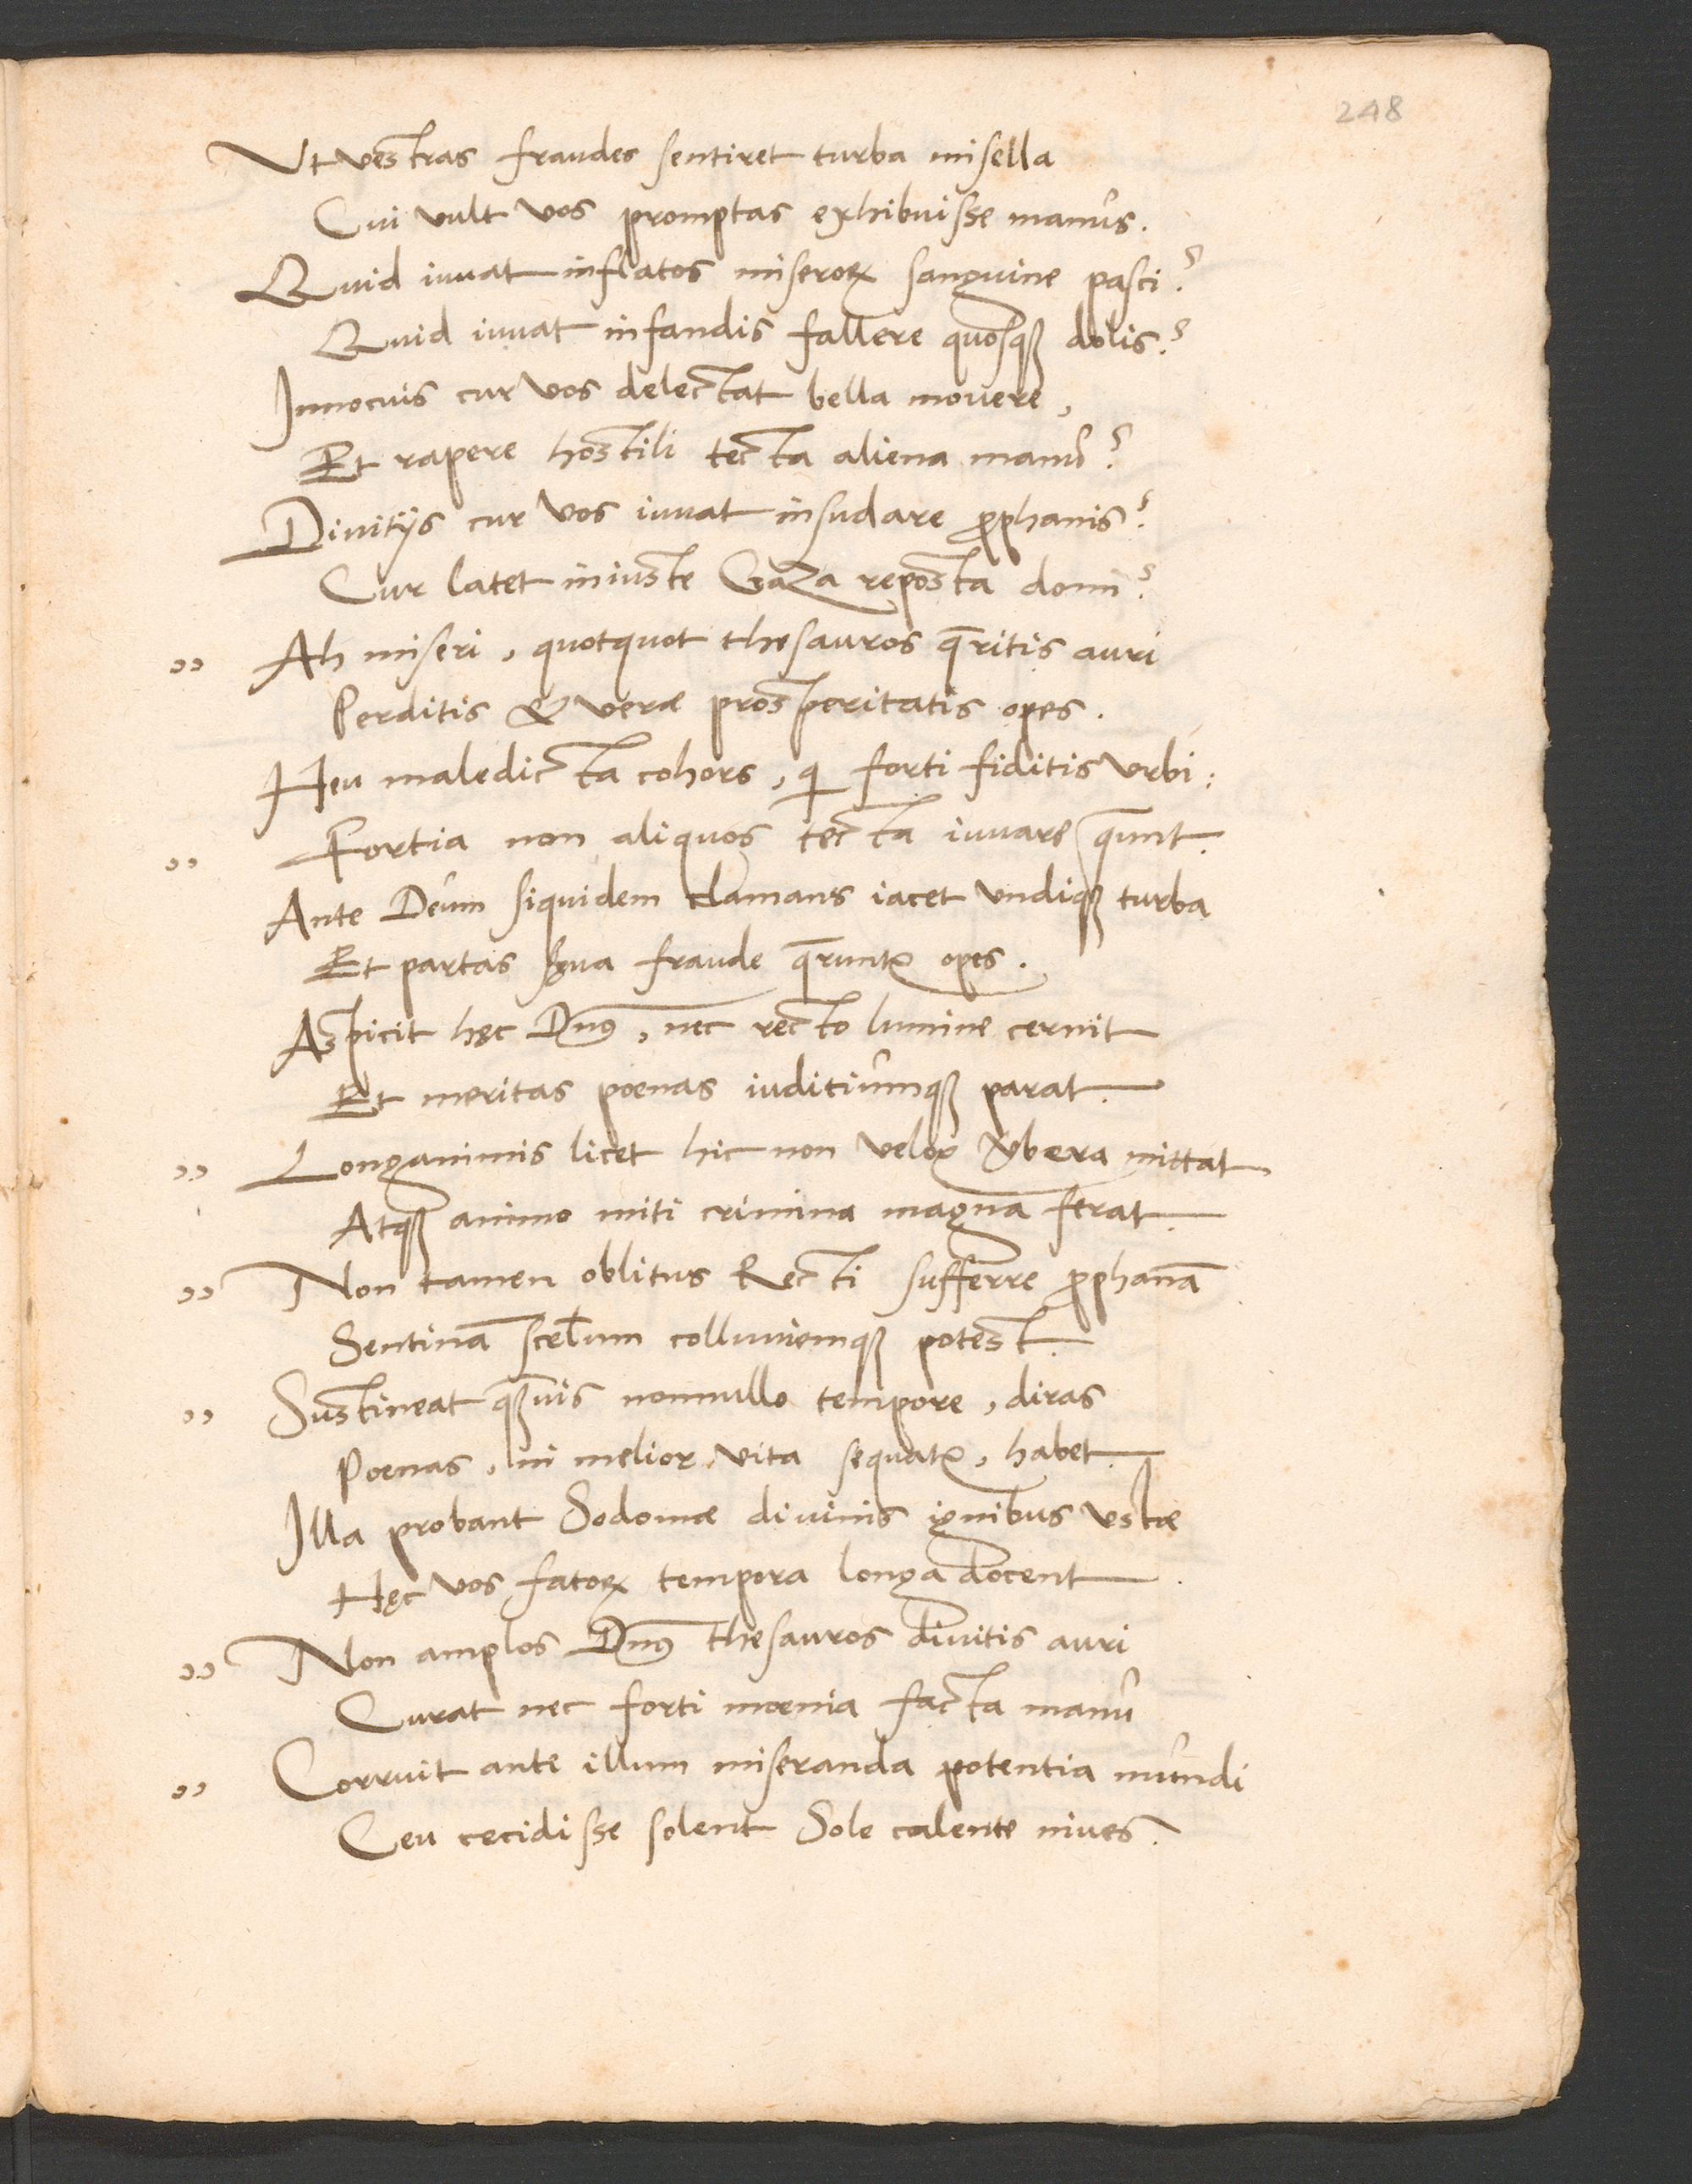 248
Vt vestras fraudes sentiret turba misella
Cui vult vos promptas exhibuisse manus.
Quid iuuat inflatos miseroꝝ sanguine pasci?
Quid iuuat infandis fallere quosqꝫ dolis?
Innocuis cur vos delectat bella mouere,
Et rapere hostili tecta aliena manu?
Diuitijs cur vos iuuat insudare ꝓphanis?
Cur latet iniuste Gaza reposta domi?
" Ah miseri, quotquot thesauros q̄ritis auri
Perditis & veræ prosperitatis opes.
Heu maledicta cohors, qi forti fiditis vrbi:
" Fortia non aliquos tecta iuuare q̄unt.
Ante Deum siquidem clamans iacet vndiqꝫ turba
Et partas sęua fraude q̄runtr opes.
Aspicit hęc Dn̄s, nec recto lumine cernit
Et meritas poenas iuditiumqꝫ parat.
" Longanimis licet hic non velox v̄bera mittat
Atqꝫ animo miti crimina magna ferat.
" Non tamen oblitus Recti sufferre ꝓphanā
Sentinā scelum colluuiemqꝫ potest.
" Sustineat qꝫuis nonnullo tempore, diras
Poenas, ni melior vita sequatr, habet.
Illa probant Sodomæ diuinis ignibus vstæ
Hęc vos fatoꝝ tempora longa docent.
" Non amplos Dn̄s thesauros diuitis auri
Curat nec forti moenia facta manu
" Corruit ante illum miseranda potentia mundi
Ceu cecidisse solent Sole calente niues.